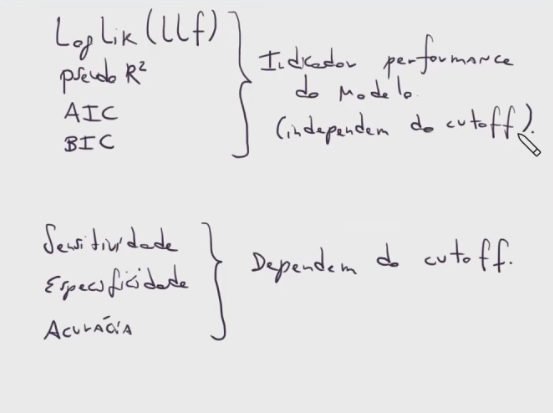 LogLik (LLf)
pseudo R²
AIC
BIC
Indicador performance
do Modelo
(independem do cutoff).
Sensitividade
Especificidade
Acurácia
Dependem do cutoff.